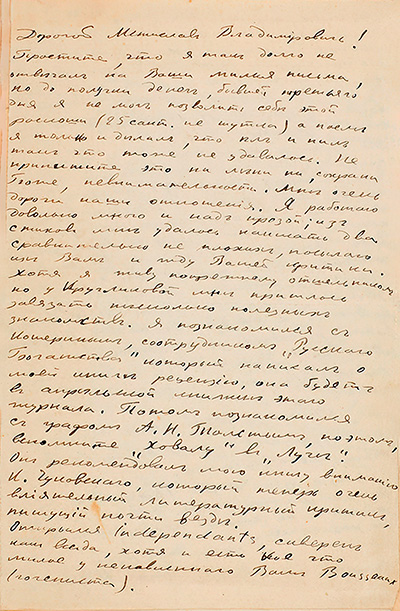 Дорогой Мстиславъ Владимiровичъ!
Простите, что я такъ долго не
отвѣчалъ на Ваши милыя письма,
но до получки денегъ, бывшей третьяго
дня я не могъ позволить себѣ этой
роскоши (25 сант. не шутка) а послѣ
я только и дѣлалъ, что ѣлъ и пилъ
такъ что тоже не удавалось. Не
примите это за лѣнь или, сохрани
Боже, невнимательность. Мнѣ очень
дороги наши отношенiя. Я работаю
довольно много и надъ прозой; изъ
стиховъ мнѣ удалось написать два
сравнительно не плохихъ, посылаю
ихъ Вамъ и жду Вашей критики.
Хотя я живу попрежнему отшельникомъ
но у Кругликовой мнѣ пришлось
завязать нѣсколько полезныхъ
знакомствъ. Я познакомился съ
сотрудникомъ „Русскаго
Богатства" который написалъ о
моей книгѣ рецензiю, она будетъ
въ апрѣльской книжкѣ этого
журнала. Потомъ познакомился
съ графомъ А. Н. Толстымъ, поэтомъ,
вспомните „Ховалу" въ „Лучѣ".
Онъ рекомендовалъ мою книгу вниманiю
К. Чуковскаго, который теперь очень
влiятельный литературный критикъ,
пишущiй почти вездѣ.
Открылся Independants, скверенъ
какъ всегда, хотя и есть кое что
милое у ненавистнаго Вамъ